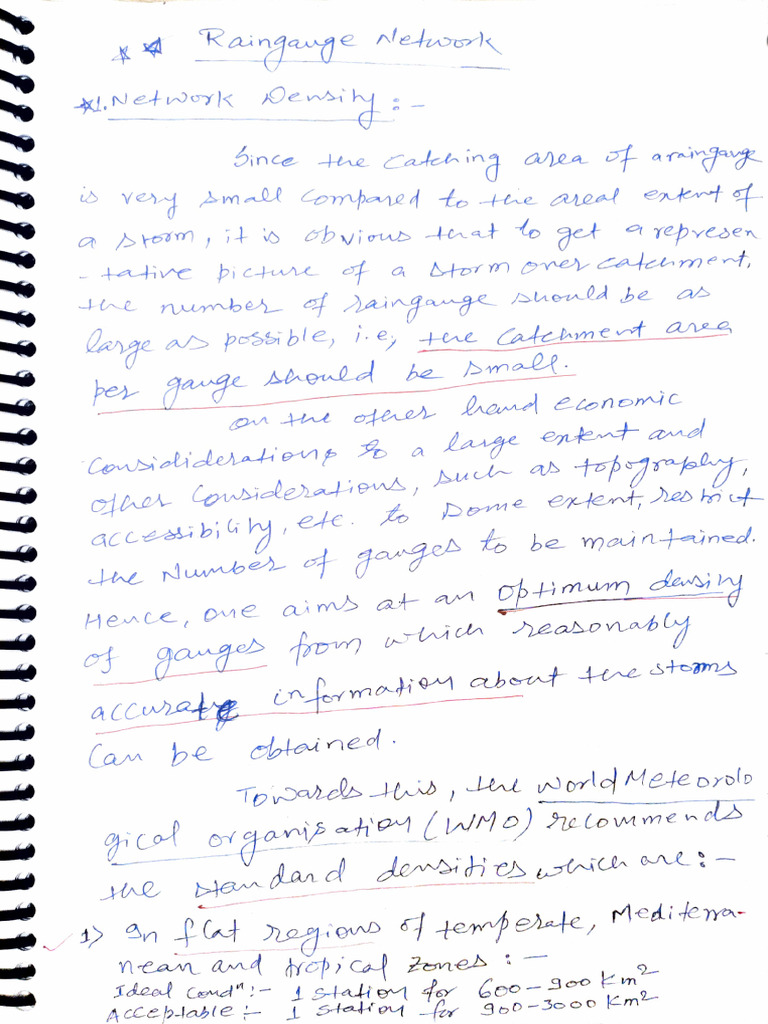 Raingauge Network
*1. Network Density :-
Since the catching area of a raingauge
is very small compared to the areal extent of
a storm, it is obvious that to get a represen
-tative picture of a storm over catchment,
the number of raingauge should be as
large as possible, i.e, the catchment area
per gauge should be small.
on the other hand economic
Consididerations to a large extent and
other considerations, such as topography,
accessibility, etc. to some extent, restrict
the Number of gauges to be maintained.
Hence, one aims at an optimum density
of gauges from which reasonably
accurate information about the storms
can be obtained.
Towards this, the world Meteorolo
gical organisation (WMO) recommends
the standard densities which are :-
1) In flat regions of temperate, Mediterra-
nean and tropical zones :-
Ideal condn :- 1 station for 600-900 Km2
Acceptable :- 1 station for 900-3000 Km2